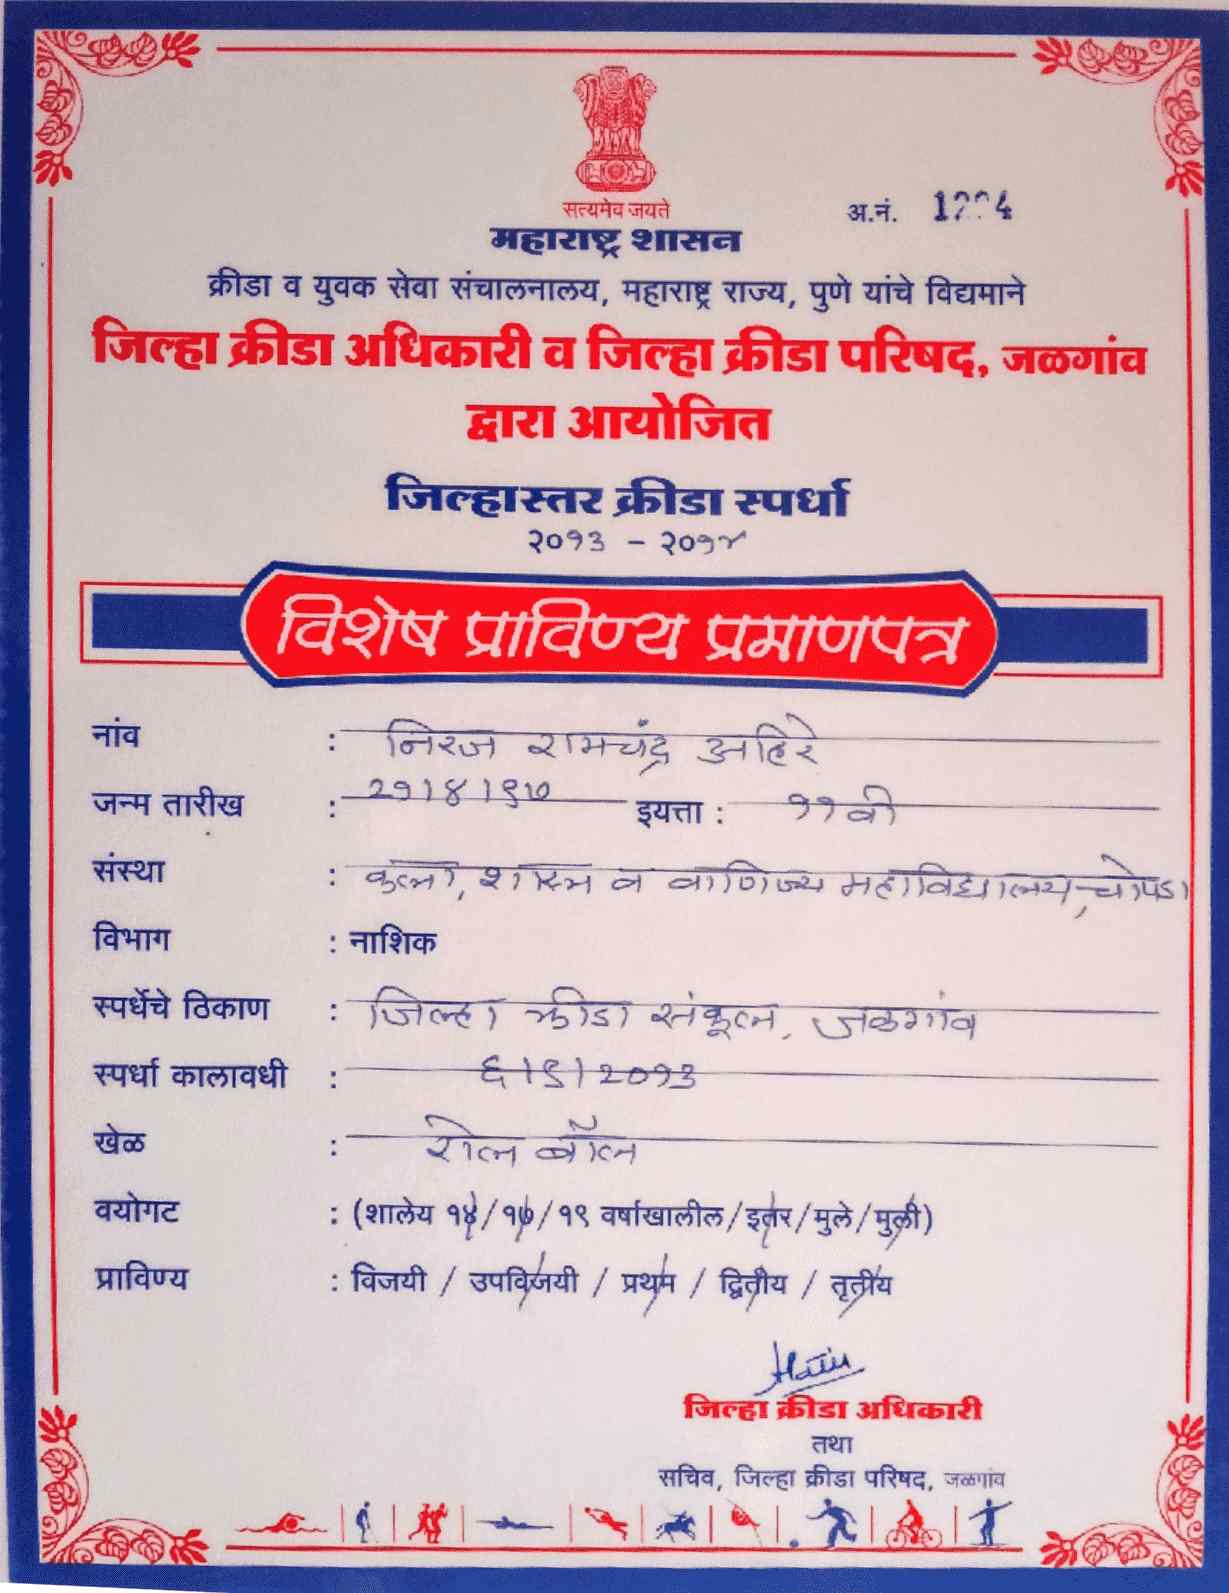 सत्यमेव जयते
अ.नं.
महाराष्ट्र शासन
क्रीडा व युवक सेवा संचालनालय, महाराष्ट्र राज्य, पुणे यांचे विद्यमाने
जिल्हा क्रीडा अधिकारी व जिल्हा क्रीडा परिषद, जळगांव
द्वारा आयोजित
जिल्हास्तर क्रीडा स्पर्धा
२०१३ - २०१४
विशेष प्राविण्य प्रमाणपत्र
नांव : निरज रामचंद्र अहिरे
जन्म तारीख : इयत्ता : ११ वी
संस्था : कला, शास्त्र व वाणिज्य महाविद्यालय, चोपडा
विभाग : नाशिक
स्पर्धेचे ठिकाण : जिल्हा क्रीडा संकूल, जळगांव
स्पर्धा कालावधी : ६।९।२०१३
खेळ : रोल बॉल
वयोगट : (शालेय १४/१७/१९ वर्षाखालील/इतर/मुले/मुली)
प्राविण्य : विजयी / उपविजयी / प्रथम / द्वितीय / तृतीय
जिल्हा क्रीडा अधिकारी
तथा
सचिव, जिल्हा क्रीडा परिषद, जळगांव